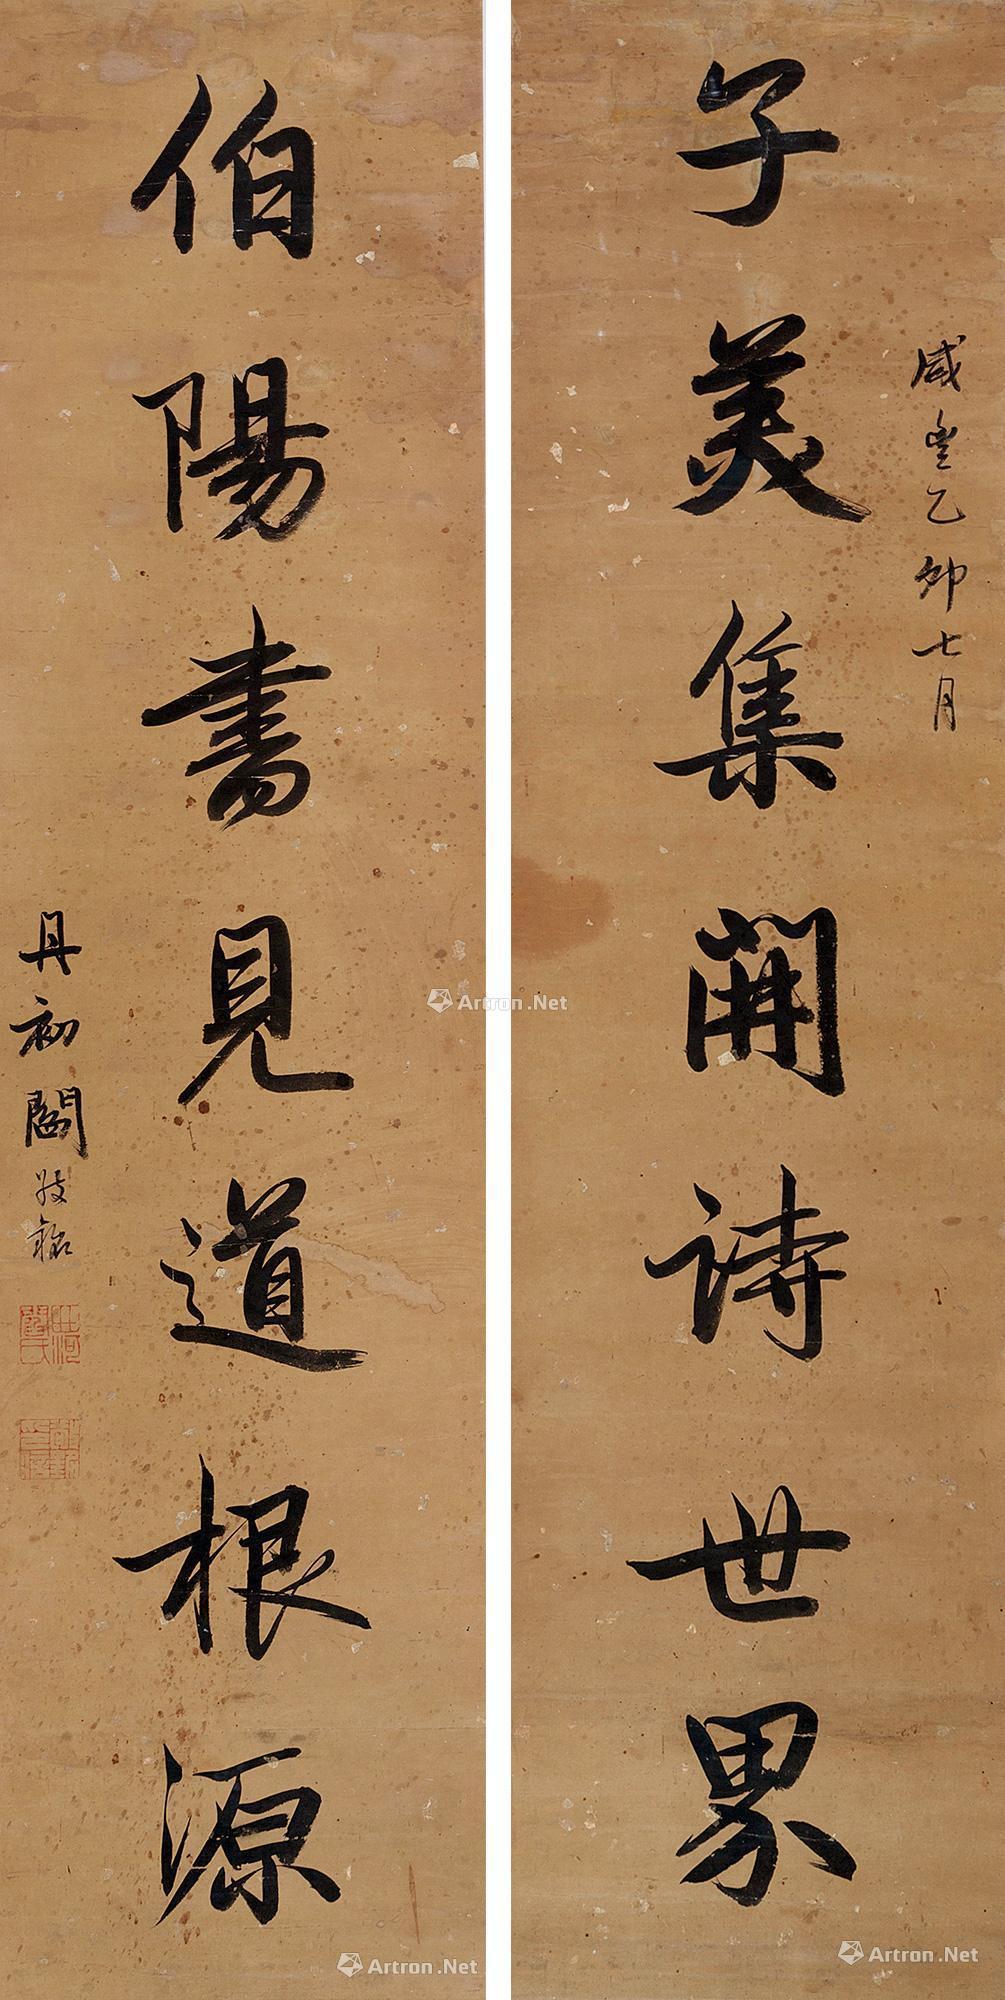 咸豐乙卯七月
子美集開詩世界
伯陽書見道根源
丹初閻敬銘
Artron.Net
Artron.Net
Artron.Net